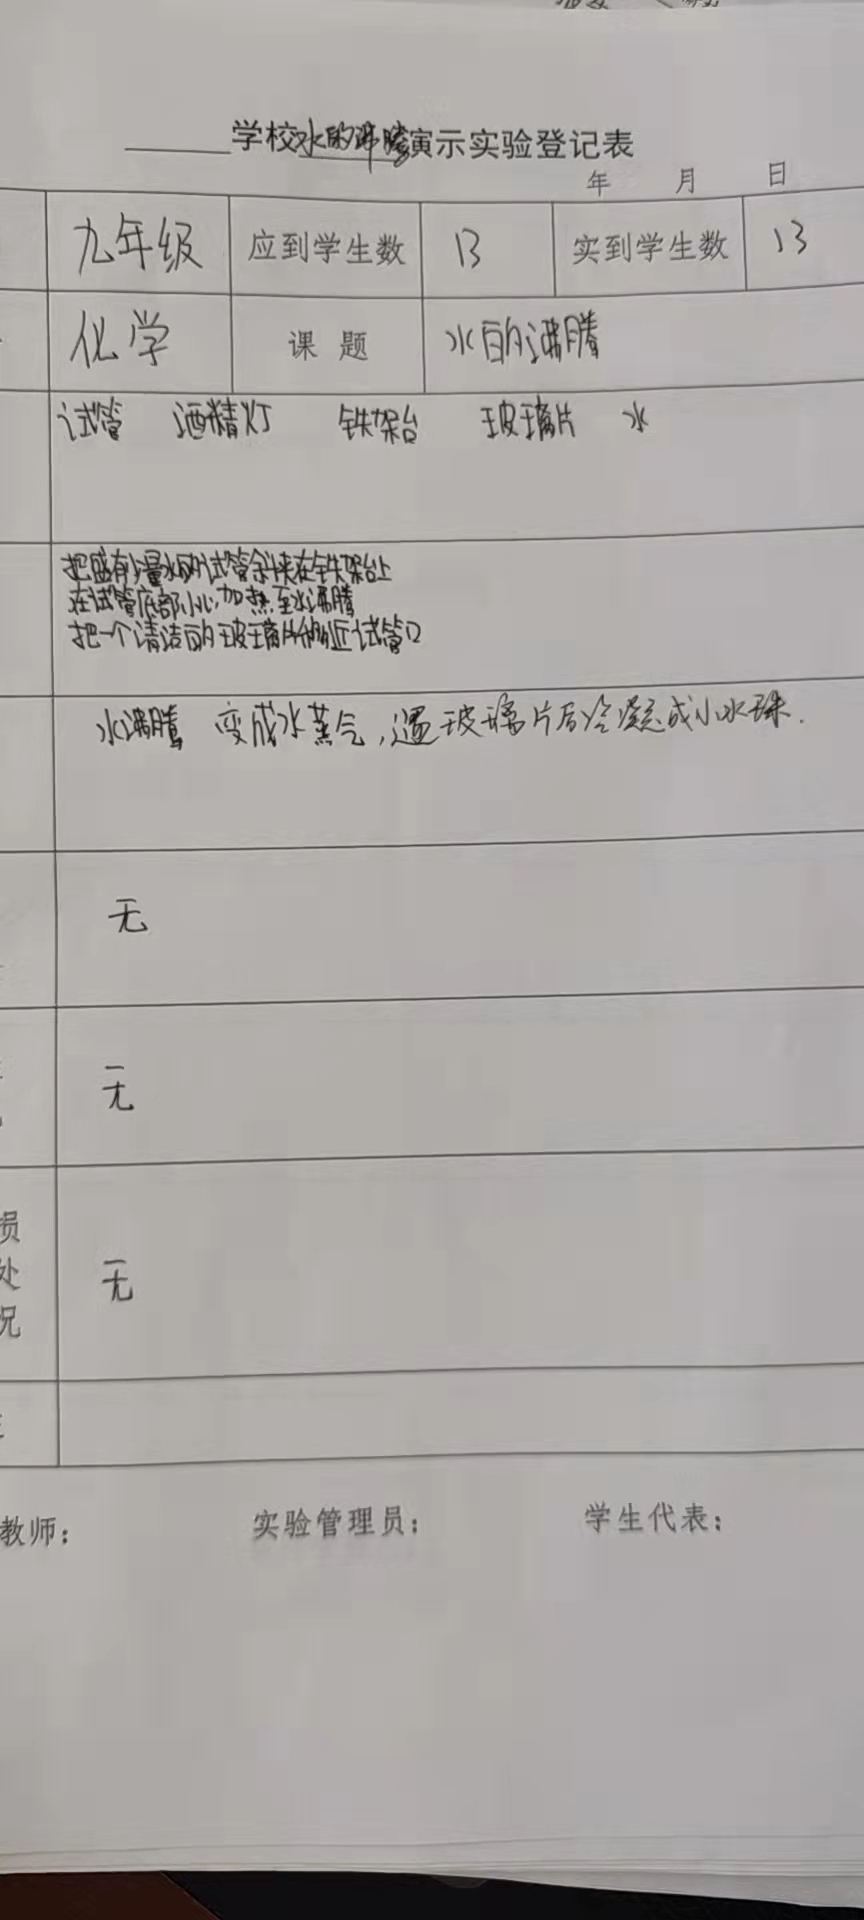 学校水的沸腾演示实验登记表
年 月 日
九年级 应到学生数 13 实到学生数 13
化学 课题 水的沸腾
试管 酒精灯 铁架台 玻璃片 水
把盛有少量水的试管斜夹在铁架台上
在试管底部小心加热至水沸腾
把一个清洁的玻璃片移近试管口
水沸腾 变成水蒸气,遇玻璃片后冷凝成小水珠.
无
无
损
处
况
无
教师: 实验管理员: 学生代表: